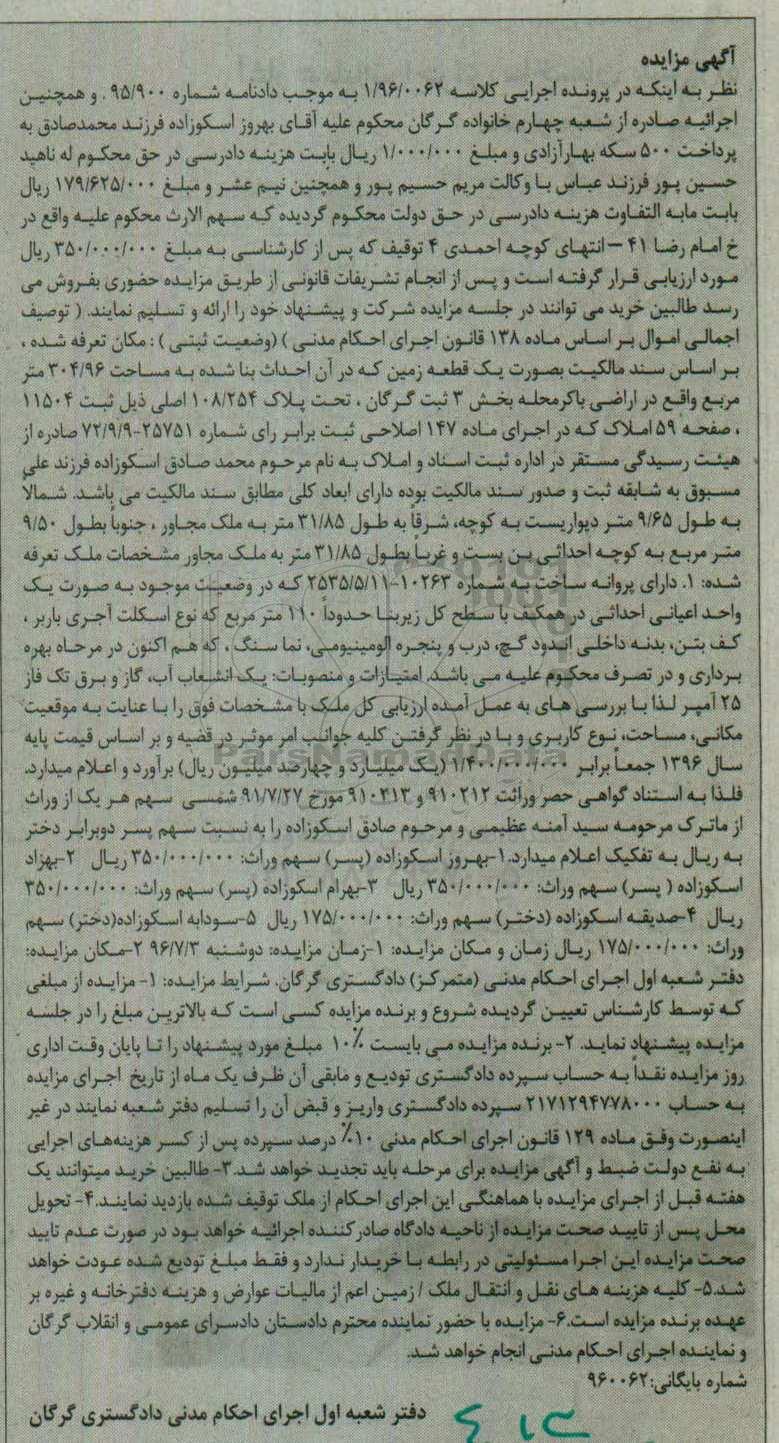 آگهی مزایده
نظر به اینکه در پرونده اجرایی کلاسه ۱/۹۶/۰۰۶۲ به موجب دادنامه شماره ۹۵/۹۰۰ . و همچنین
اجرائیه صادره از شعبه چهارم خانواده گرگان محکوم علیه آقای بهروز اسکوزاده فرزند محمدصادق به
پرداخت ۵۰۰ سکه بهارآزادی و مبلغ ۱/۰۰۰/۰۰۰ ریال بابت هزینه دادرسی در حق محکوم له ناهید
حسین پور فرزند عباس با وکالت مریم حسیم پور و همچنین نیم عشر و مبلغ ۱۷۹/۶۲۵/۰۰۰ ریال
بابت مابه التفاوت هزینه دادرسی در حق دولت محکوم گردیده که سهم الارث محکوم علیه واقع در
خ امام رضا ۴۱ –انتهای کوچه احمدی ۴ توقیف که پس از کارشناسی به مبلغ ۳۵۰/۰۰۰/۰۰۰ ریال
مورد ارزیابی قرار گرفته است و پس از انجام تشریفات قانونی از طریق مزایده حضوری بفروش می
رسد طالبین خرید می توانند در جلسه مزایده شرکت و پیشنهاد خود را ارائه و تسلیم نمایند. ( توصیف
اجمالی اموال بر اساس ماده ۱۳۸ قانون اجرای احکام مدنی ) (وضعیت ثبتی ) : مکان تعرفه شده ،
بر اساس سند مالکیت بصورت یک قطعه زمین که در آن احداث بنا شده به مساحت ۳۰۴/۹۶ متر
مربع واقع در اراضی باکرمحله بخش ۳ ثبت گرگان ، تحت پلاک ۱۰۸/۲۵۴ اصلی ذیل ثبت ۱۱۵۰۴
، صفحه ۵۹ املاک که در اجرای ماده ۱۴۷ اصلاحی ثبت برابر رای شماره ۲۵۷۵۱-۷۲/۹/۹ صادره از
هیئت رسیدگی مستقر در اداره ثبت اسناد و املاک به نام مرحوم محمد صادق اسکوزاده فرزند علی
مسبوق به شابقه ثبت و صدور سند مالکیت بوده دارای ابعاد کلی مطابق سند مالکیت می باشد. شمالاً
به طول ۹/۶۵ متر دیواریست به کوچه، شرقاً به طول ۳۱/۸۵ متر به ملک مجاور ، جنوباً بطول ۹/۵۰
متر مربع به کوچه احداثی بن بست و غرباً بطول ۳۱/۸۵ متر به ملک مجاور مشخصات ملک تعرفه
شده: ۱. دارای پروانه ساخت به شماره ۱۰۲۶۳-۲۵۳۵/۵/۱۱ که در وضعیت موجود به صورت یک
واحد اعیانی احداثی در همکف با سطح کل زیربنا حدوداً ۱۱۰ متر مربع که نوع اسکلت آجری باربر ،
کف بتن، بدنه داخلی اندود گچ، درب و پنجره الومینیومی، نما سنگ ، که هم اکنون در مرحاه بهره
برداری و در تصرف محکوم علیه می باشد. امتیازات و منصوبات: یک انشعاب آب، گاز و برق تک فاز
۲۵ آمپر لذا با بررسی های به عمل آمده ارزیابی کل ملک با مشخصات فوق را با عنایت به موقعیت
مکانی، مساحت، نوع کاربری و با در نظر گرفتن کلیه جوانب امر موثر در قضیه و بر اساس قیمت پایه
سال ۱۳۹۶ جمعاً برابر ۱/۴۰۰/۰۰۰/۰۰۰ (یک میلیارد و چهارصد میلیون ریال) برآورد و اعلام میدارد.
فلذا به استناد گواهی حصر وراثت ۹۱۰۲۱۲ و ۹۱۰۲۱۳ مورخ ۹۱/۷/۲۷ شمسی سهم هر یک از وراث
از ماترک مرحومه سید آمنه عظیمی و مرحوم صادق اسکوزاده را به نسبت سهم پسر دوبرابر دختر
به ریال به تفکیک اعلام میدارد.۱-بهروز اسکوزاده (پسر) سهم وراث: ۳۵۰/۰۰۰/۰۰۰ ریال ۲-بهزاد
اسکوزاده ( پسر) سهم وراث: ۳۵۰/۰۰۰/۰۰۰ ریال ۳-بهرام اسکوزاده (پسر) سهم وراث: ۳۵۰/۰۰۰/۰۰۰
ریال ۴-صدیقه اسکوزاده (دختر) سهم وراث: ۱۷۵/۰۰۰/۰۰۰ ریال ۵-سودابه اسکوزاده(دختر) سهم
وراث: ۱۷۵/۰۰۰/۰۰۰ ریال زمان و مکان مزایده: ۱-زمان مزایده: دوشنبه ۹۶/۷/۳ ۲-مکان مزایده:
دفتر شعبه اول اجرای احکام مدنی (متمرکز) دادگستری گرگان. شرایط مزایده: ۱- مزایده از مبلغی
که توسط کارشناس تعیین گردیده شروع و برنده مزایده کسی است که بالاترین مبلغ را در جلسه
مزایده پیشنهاد نماید. ۲- برنده مزایده می بایست ۱۰٪ مبلغ مورد پیشنهاد را تا پایان وقت اداری
روز مزایده نقداً به حساب سپرده دادگستری تودیع و مابقی آن ظرف یک ماه از تاریخ اجرای مزایده
به حساب ۲۱۷۱۲۹۴۷۷۸۰۰۰ سپرده دادگستری واریز و قبض آن را تسلیم دفتر شعبه نمایند در غیر
اینصورت وفق ماده ۱۲۹ قانون اجرای احکام مدنی ۱۰٪ درصد سپرده پس از کسر هزینه‌های اجرایی
به نفع دولت ضبط و آگهی مزایده برای مرحله باید تجدید خواهد شد.۳- طالبین خرید میتوانند یک
هفته قبل از اجرای مزایده با هماهنگی این اجرای احکام از ملک توقیف شده بازدید نمایند.۴- تحویل
محل پس از تایید صحت مزایده از ناحیه دادگاه صادرکننده اجرائیه خواهد بود در صورت عدم تایید
صحت مزایده این اجرا مسئولیتی در رابطه با خریدار ندارد و فقط مبلغ تودیع شده عودت خواهد
شد.۵- کلیه هزینه های نقل و انتقال ملک / زمین اعم از مالیات عوارض و هزینه دفترخانه و غیره بر
عهده برنده مزایده است.۶- مزایده با حضور نماینده محترم دادستان دادسرای عمومی و انقلاب گرگان
و نماینده اجرای احکام مدنی انجام خواهد شد.
شماره بایگانی:۹۶۰۰۶۲
دفتر شعبه اول اجرای احکام مدنی دادگستری گرگان